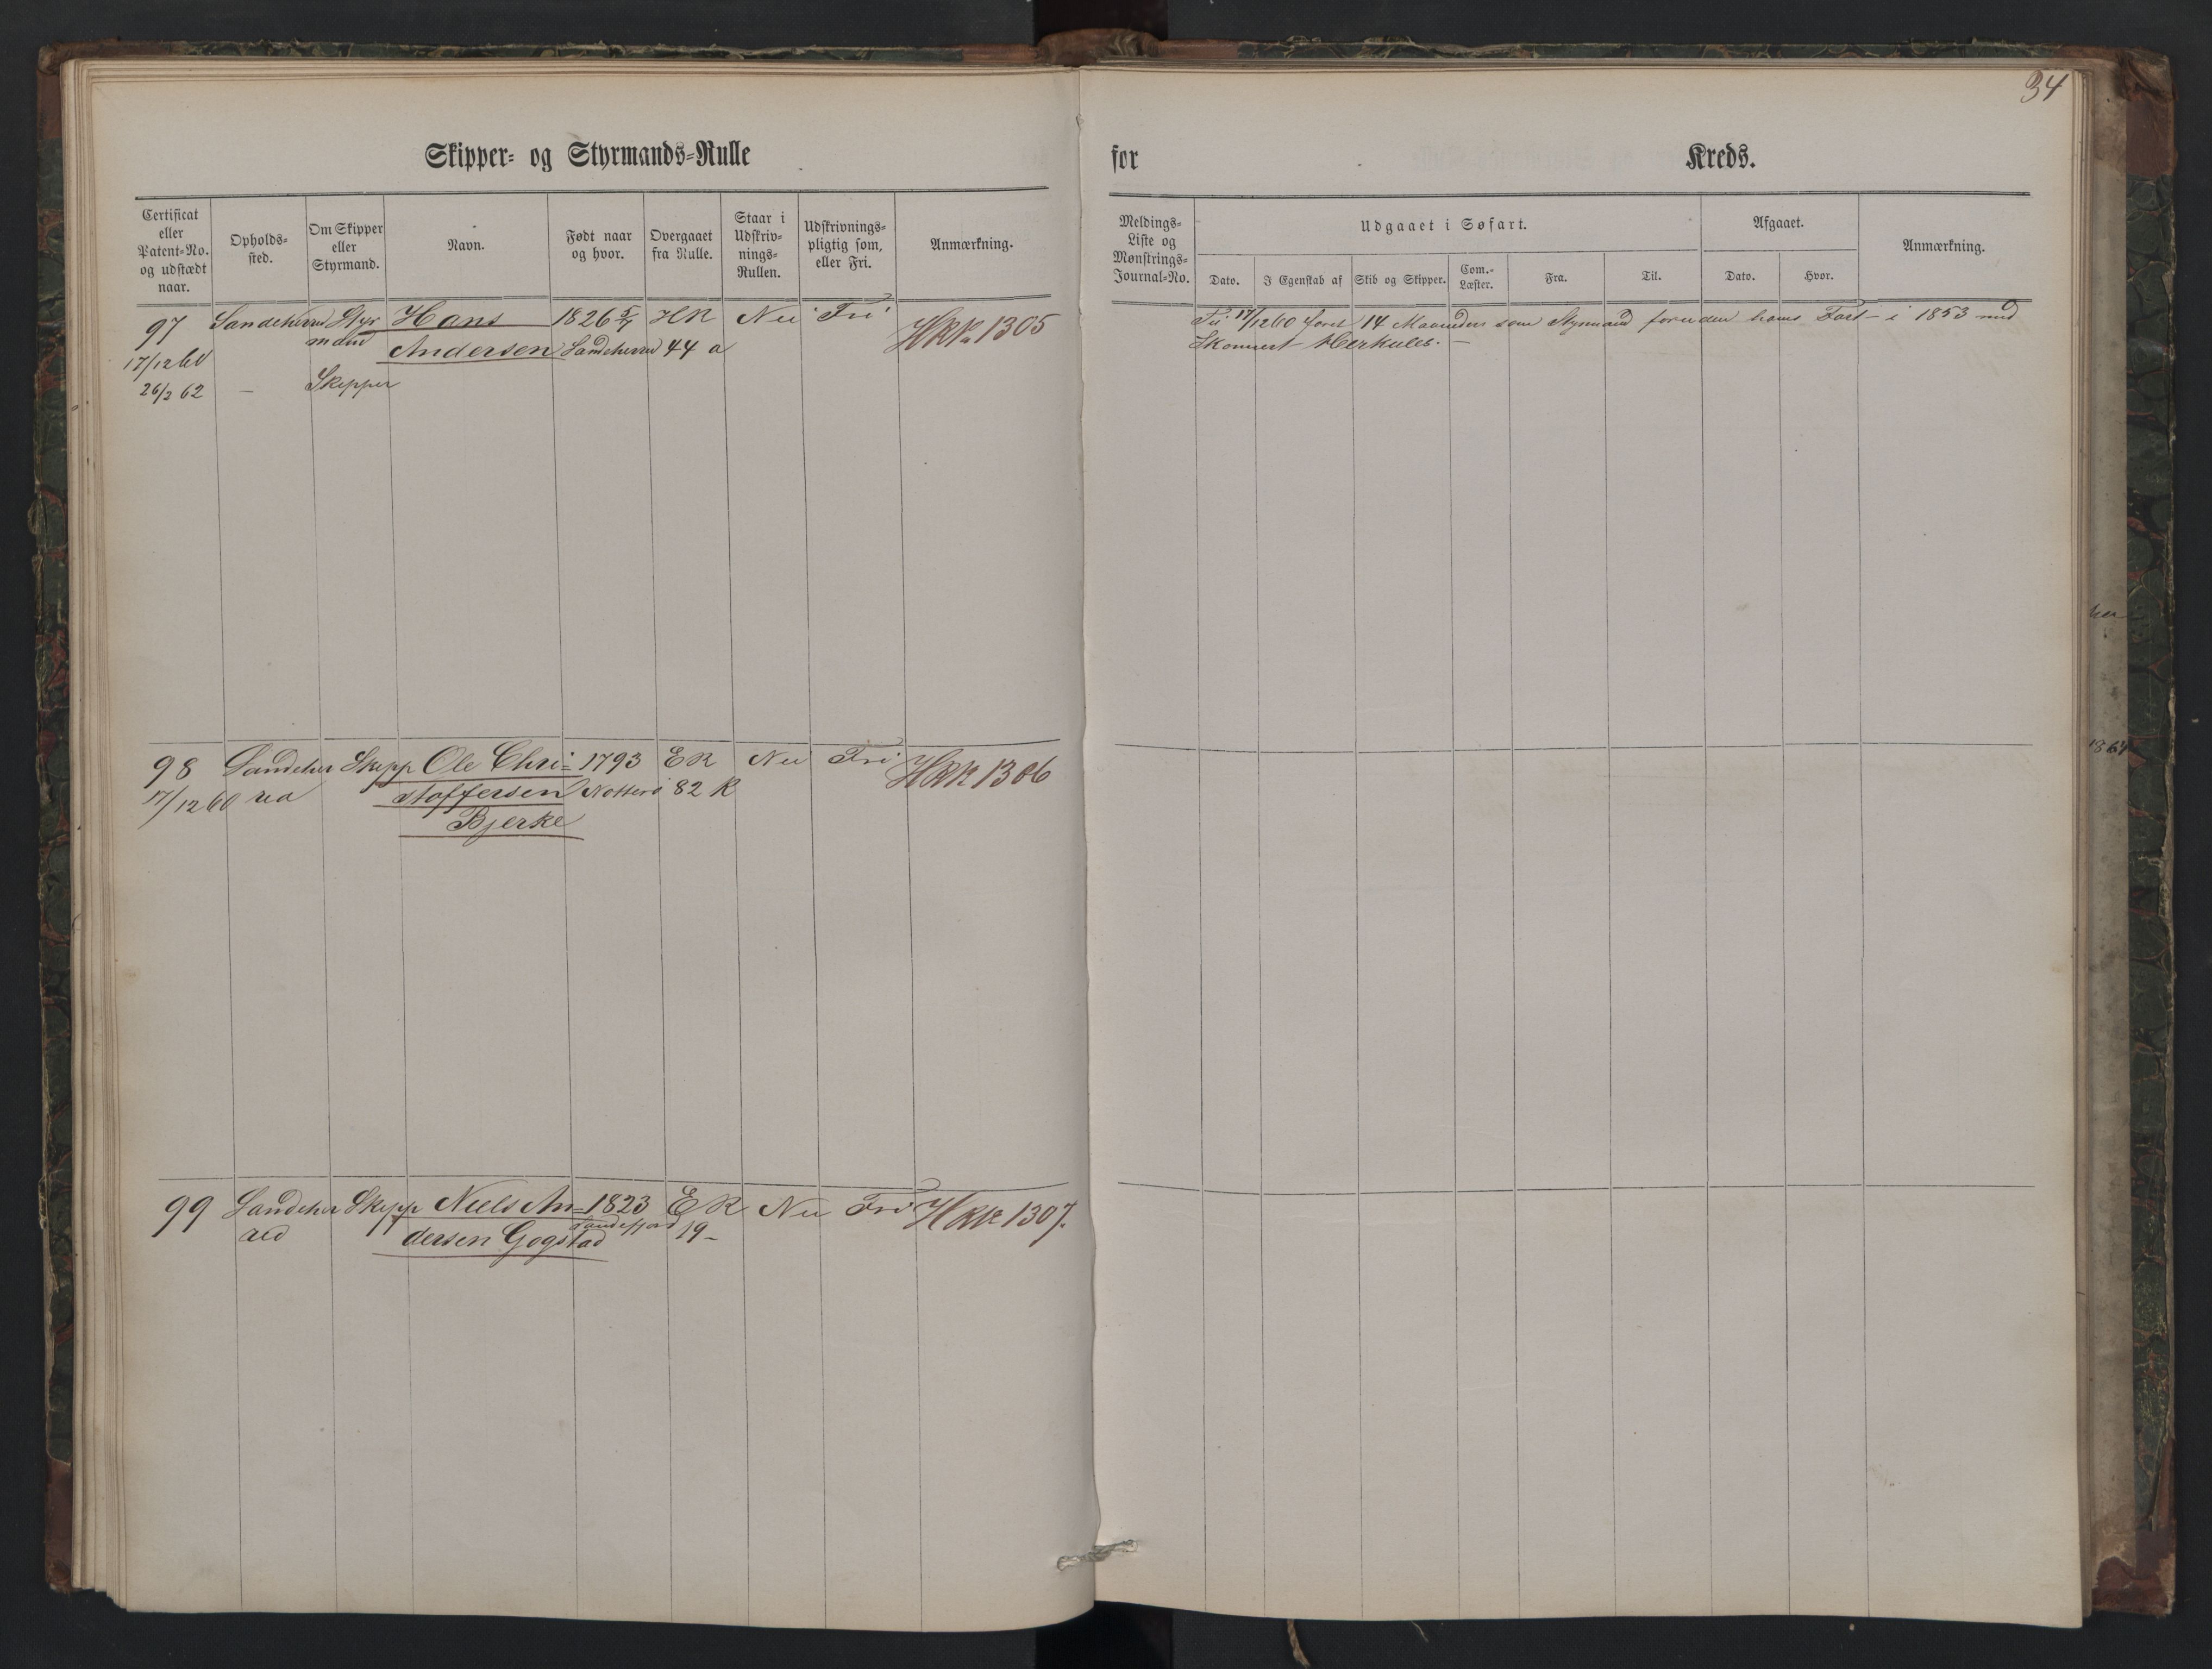 34
Skipper- og Styrmands-Rulle
for Kreds.
Certificat eller Patent-No. og udstædt naar.
Opholds-sted.
Om Skipper eller Styrmand.
Navn.
Født naar og hvor.
Overgaaet fra Rulle.
Staar i Udskriv-nings-Rullen.
Udskrivnings-pligtig som, eller Fri.
Anmærkning.
Meldings-Liste og Mønstrings-Journal-No.
Udgaaet i Søfart.
Dato.
I Egenskab af
Skib og Skipper.
Com.-Læster.
Fra.
Til.
Afgaaet.
Dato.
Hvor.
Anmærkning.
97 Sandeherred Styr Hans 1826 5/7 HR Nei Fri HRK 1305
17/12 60 mand Andersen Sandeherred 44 a
26/3 62 — Skipper
Til 17/12 60 faret 14 Maaneder som Styrmand foruden hans Fart i 1853 med
Skonnert Herkules. —
98 Sandeher Skipp Ole Chri= 1793 ER Nei Fri HRK 1306
17/12 60 red stoffersen Nøtterø 82 R
Bjerke
99 Sandeher Skipp Niels An= 1823 ER Nei Fri HRK 1307.
red dersen Gogstad Sandefjord 19 –
1864